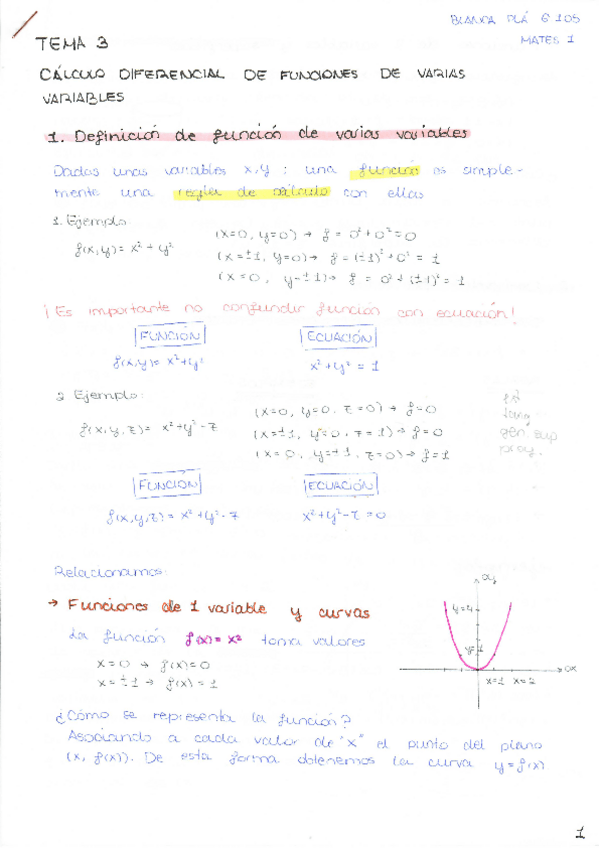 BLANCA PLÁ G 105
MATES 1
TEMA 3
CÁLCULO DIFERENCIAL DE FUNCIONES DE VARIAS
VARIABLES
1. Definición de función de varias variables
Dadas unas variables x,y : una función es simple-
mente una regla de cálculo con ellas
1. Ejemplo:
f(x,y) = x² + y²
(x=0, y=0) → f = 0²+0²=0
(x=±1, y=0) → f = (±1)²+0² = 1
(x=0, y=±1) → f = 0²+(±1)² = 1
¡Es importante no confundir función con ecuación!
FUNCIÓN ECUACIÓN
f(x,y)= x²+y² x²+y² = 1
2. Ejemplo:
f(x,y,z)= x²+y²-z
(x=0, y=0, z=0) → f=0
(x=±1, y=0, z=1) → f=0
(x=0, y=±1, z=0) → f=1
tang
gen sup
proy.
FUNCIÓN ECUACIÓN
f(x,y,z) = x²+y²-z x²+y²-z=0
Relacionamos:
→ Funciones de 1 variable y curvas
La función f(x)= x² toma valores
x=0 → f(x)=0
x=±1 → f(x)=1
oy
y=4
y=1
ox
x=1 x=2
¿Cómo se representa la función?
Asociando a cada valor de "x" el punto del plano
(x, f(x)). De esta forma obtenemos la curva y=f(x)
1